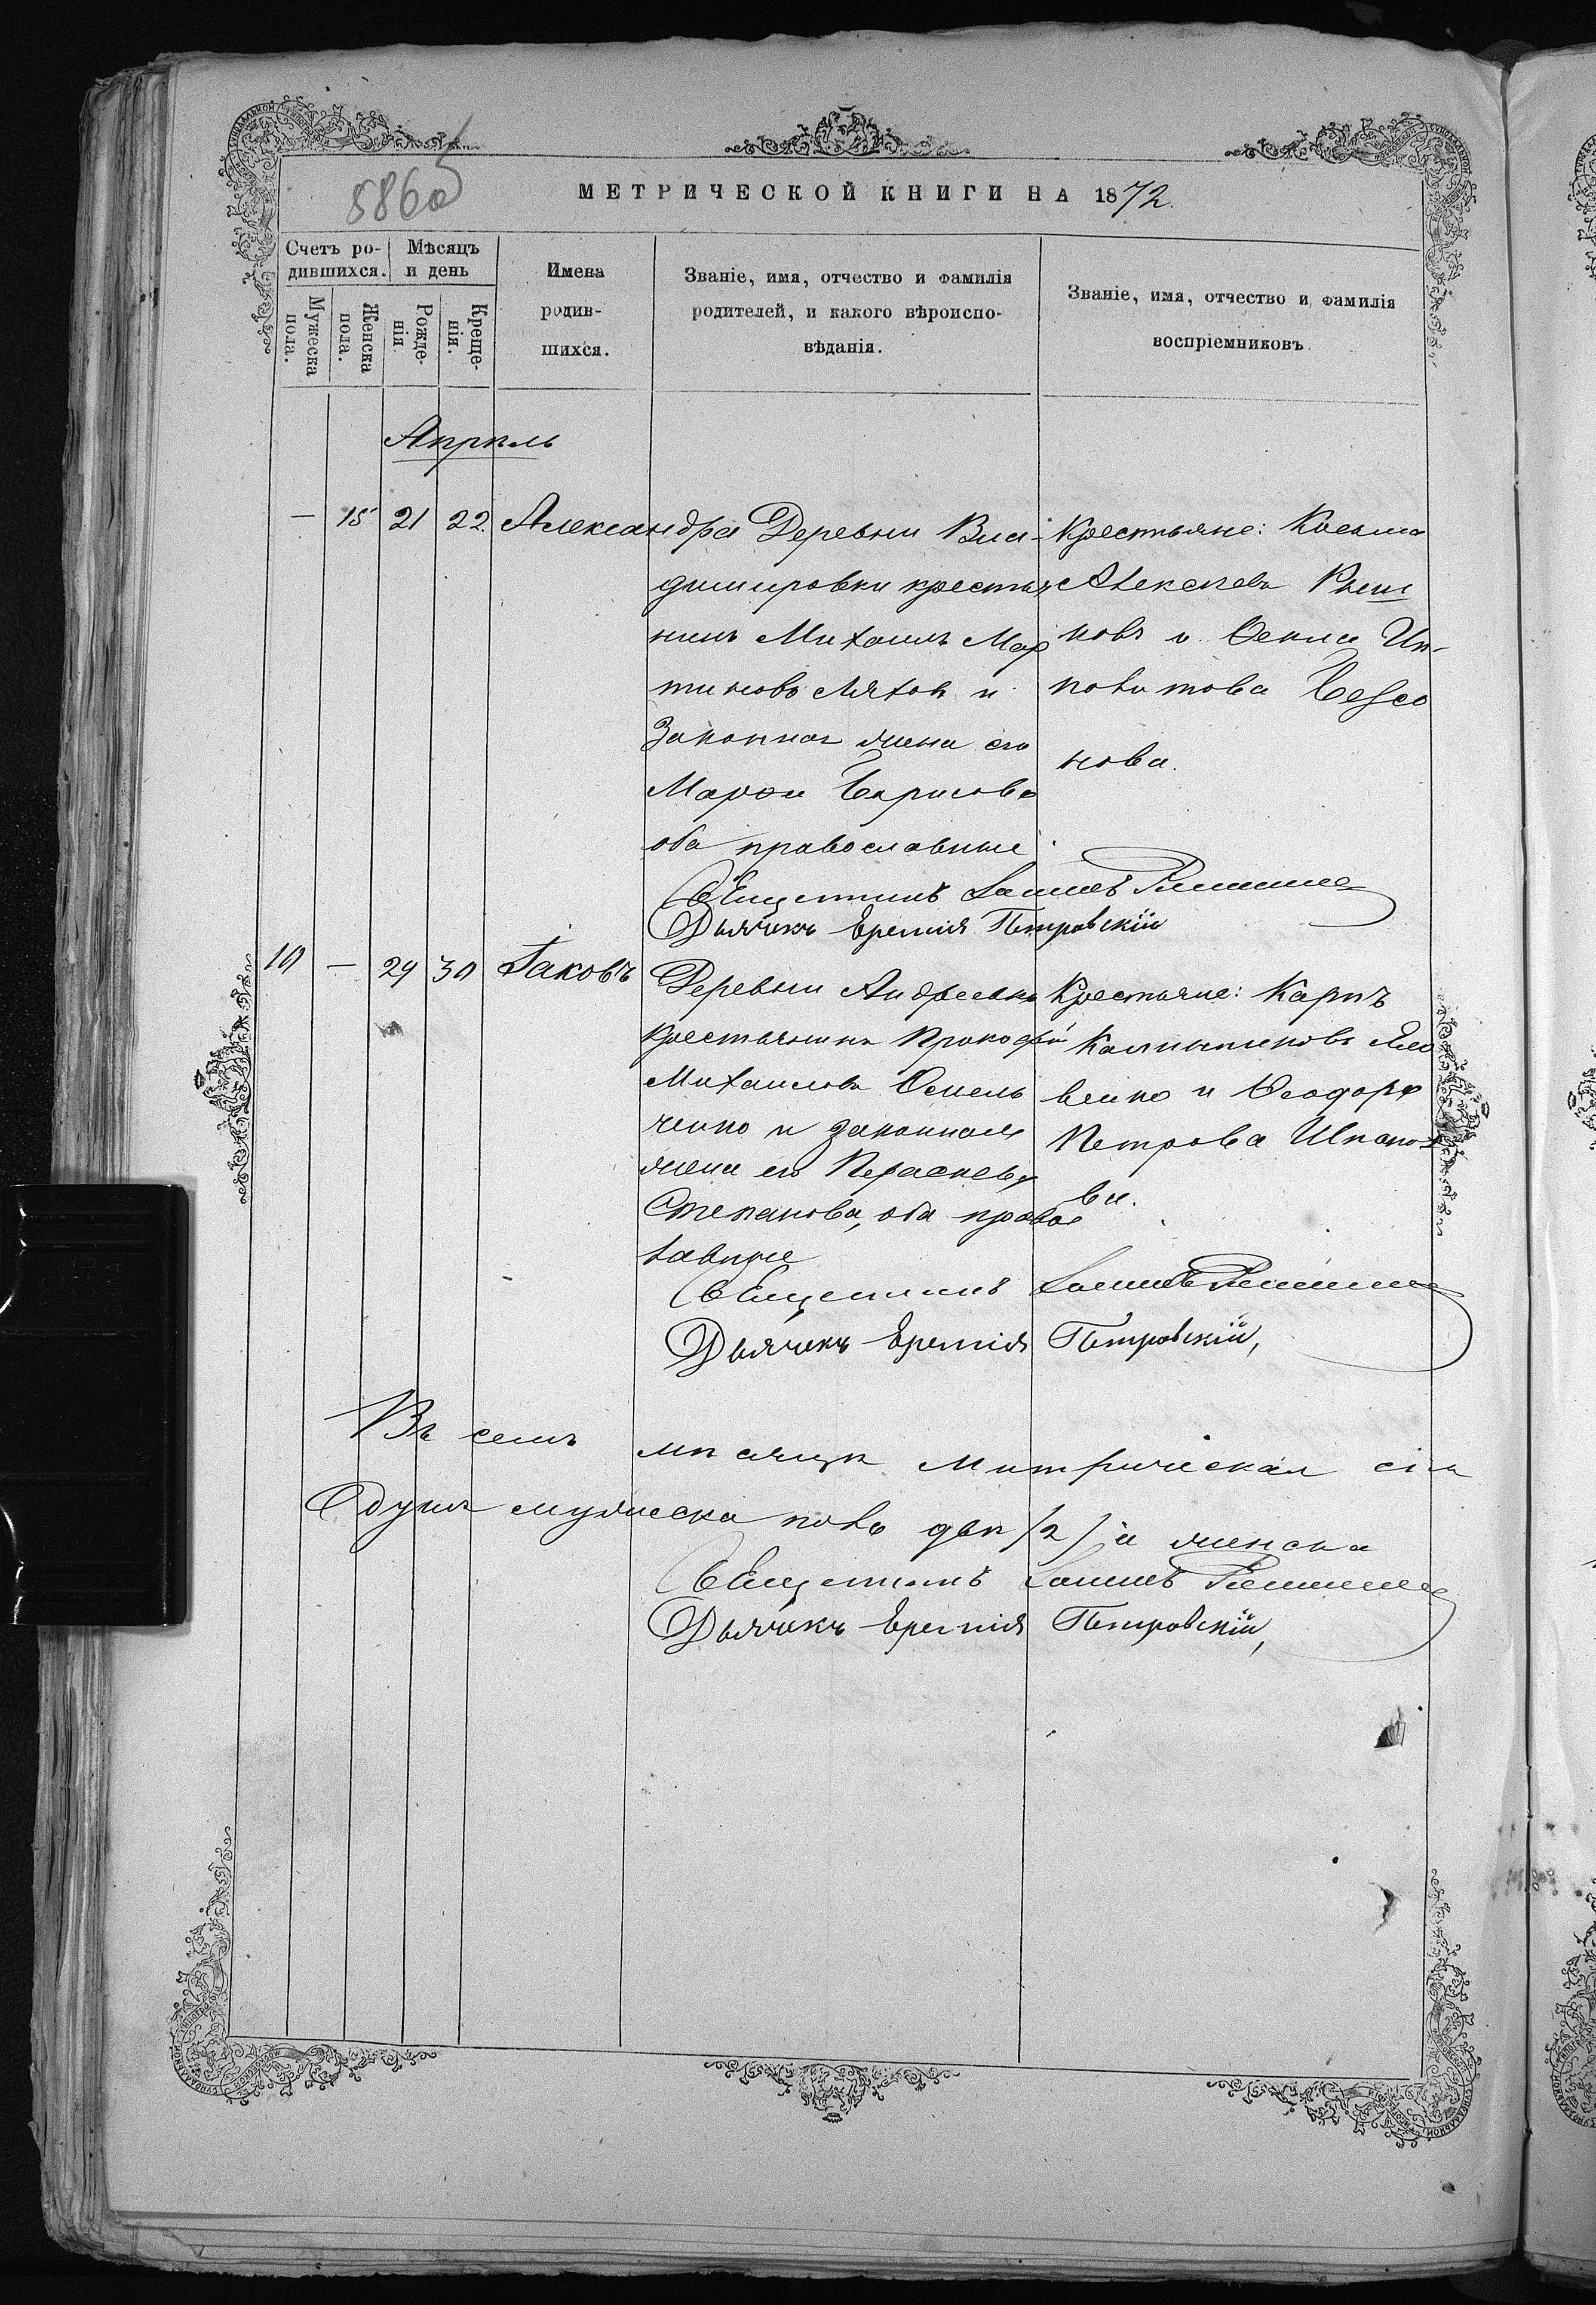 586об
МЕТРИЧЕСКОЙ КНИГИ НА 1872.
Счетъ ро-
дившихся.
Мужеска
пола.
Женска
пола.
Мѣсяцъ
и день
Рожде-
нія
Креще-
нія.
Имена
родив-
шихся.
Званіе, имя, отчество и фамилія
родителей, и какого вѣроиспо-
вѣданія.
Званіе, имя, отчество и фамилія
воспріемниковъ
Апрѣль
— 15 21 22 Александра
Деревни Вла-
димировки крестья
нинъ Михаилъ Мар
тиновъ Ляхов и
Законная жена его
Марѳа Борисова
оба православные
Крестьяне: Косьма
Алексѣевъ
новъ и Ѳекла Ип-
политова
нова.
Священникъ
Дьячекъ Еремія Петровскій
10 — 29 30 Іаковъ
Деревни Андреевки
крестьянинъ Прокофій
Михаиловъ Омель
ченко и законная
жена его Параскева
Степанова, оба правос
лавные
Крестьяне: Карпъ
венко и Ѳеодора
Петрова
ва.
Священникъ
Дьячекъ Еремія Петровскій,
Въ семъ мѣсяцѣ метрическая сія
душъ мужеска пола двѣ /2/ а женска
Священникъ
Дьячекъ Еремія Петровскій,